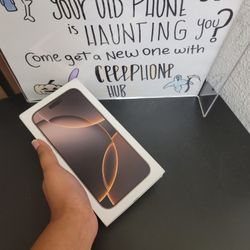 YOUR OLD PHONE
IS HAUNTING you?
Come get a New one with
CEEPHONE
HUB